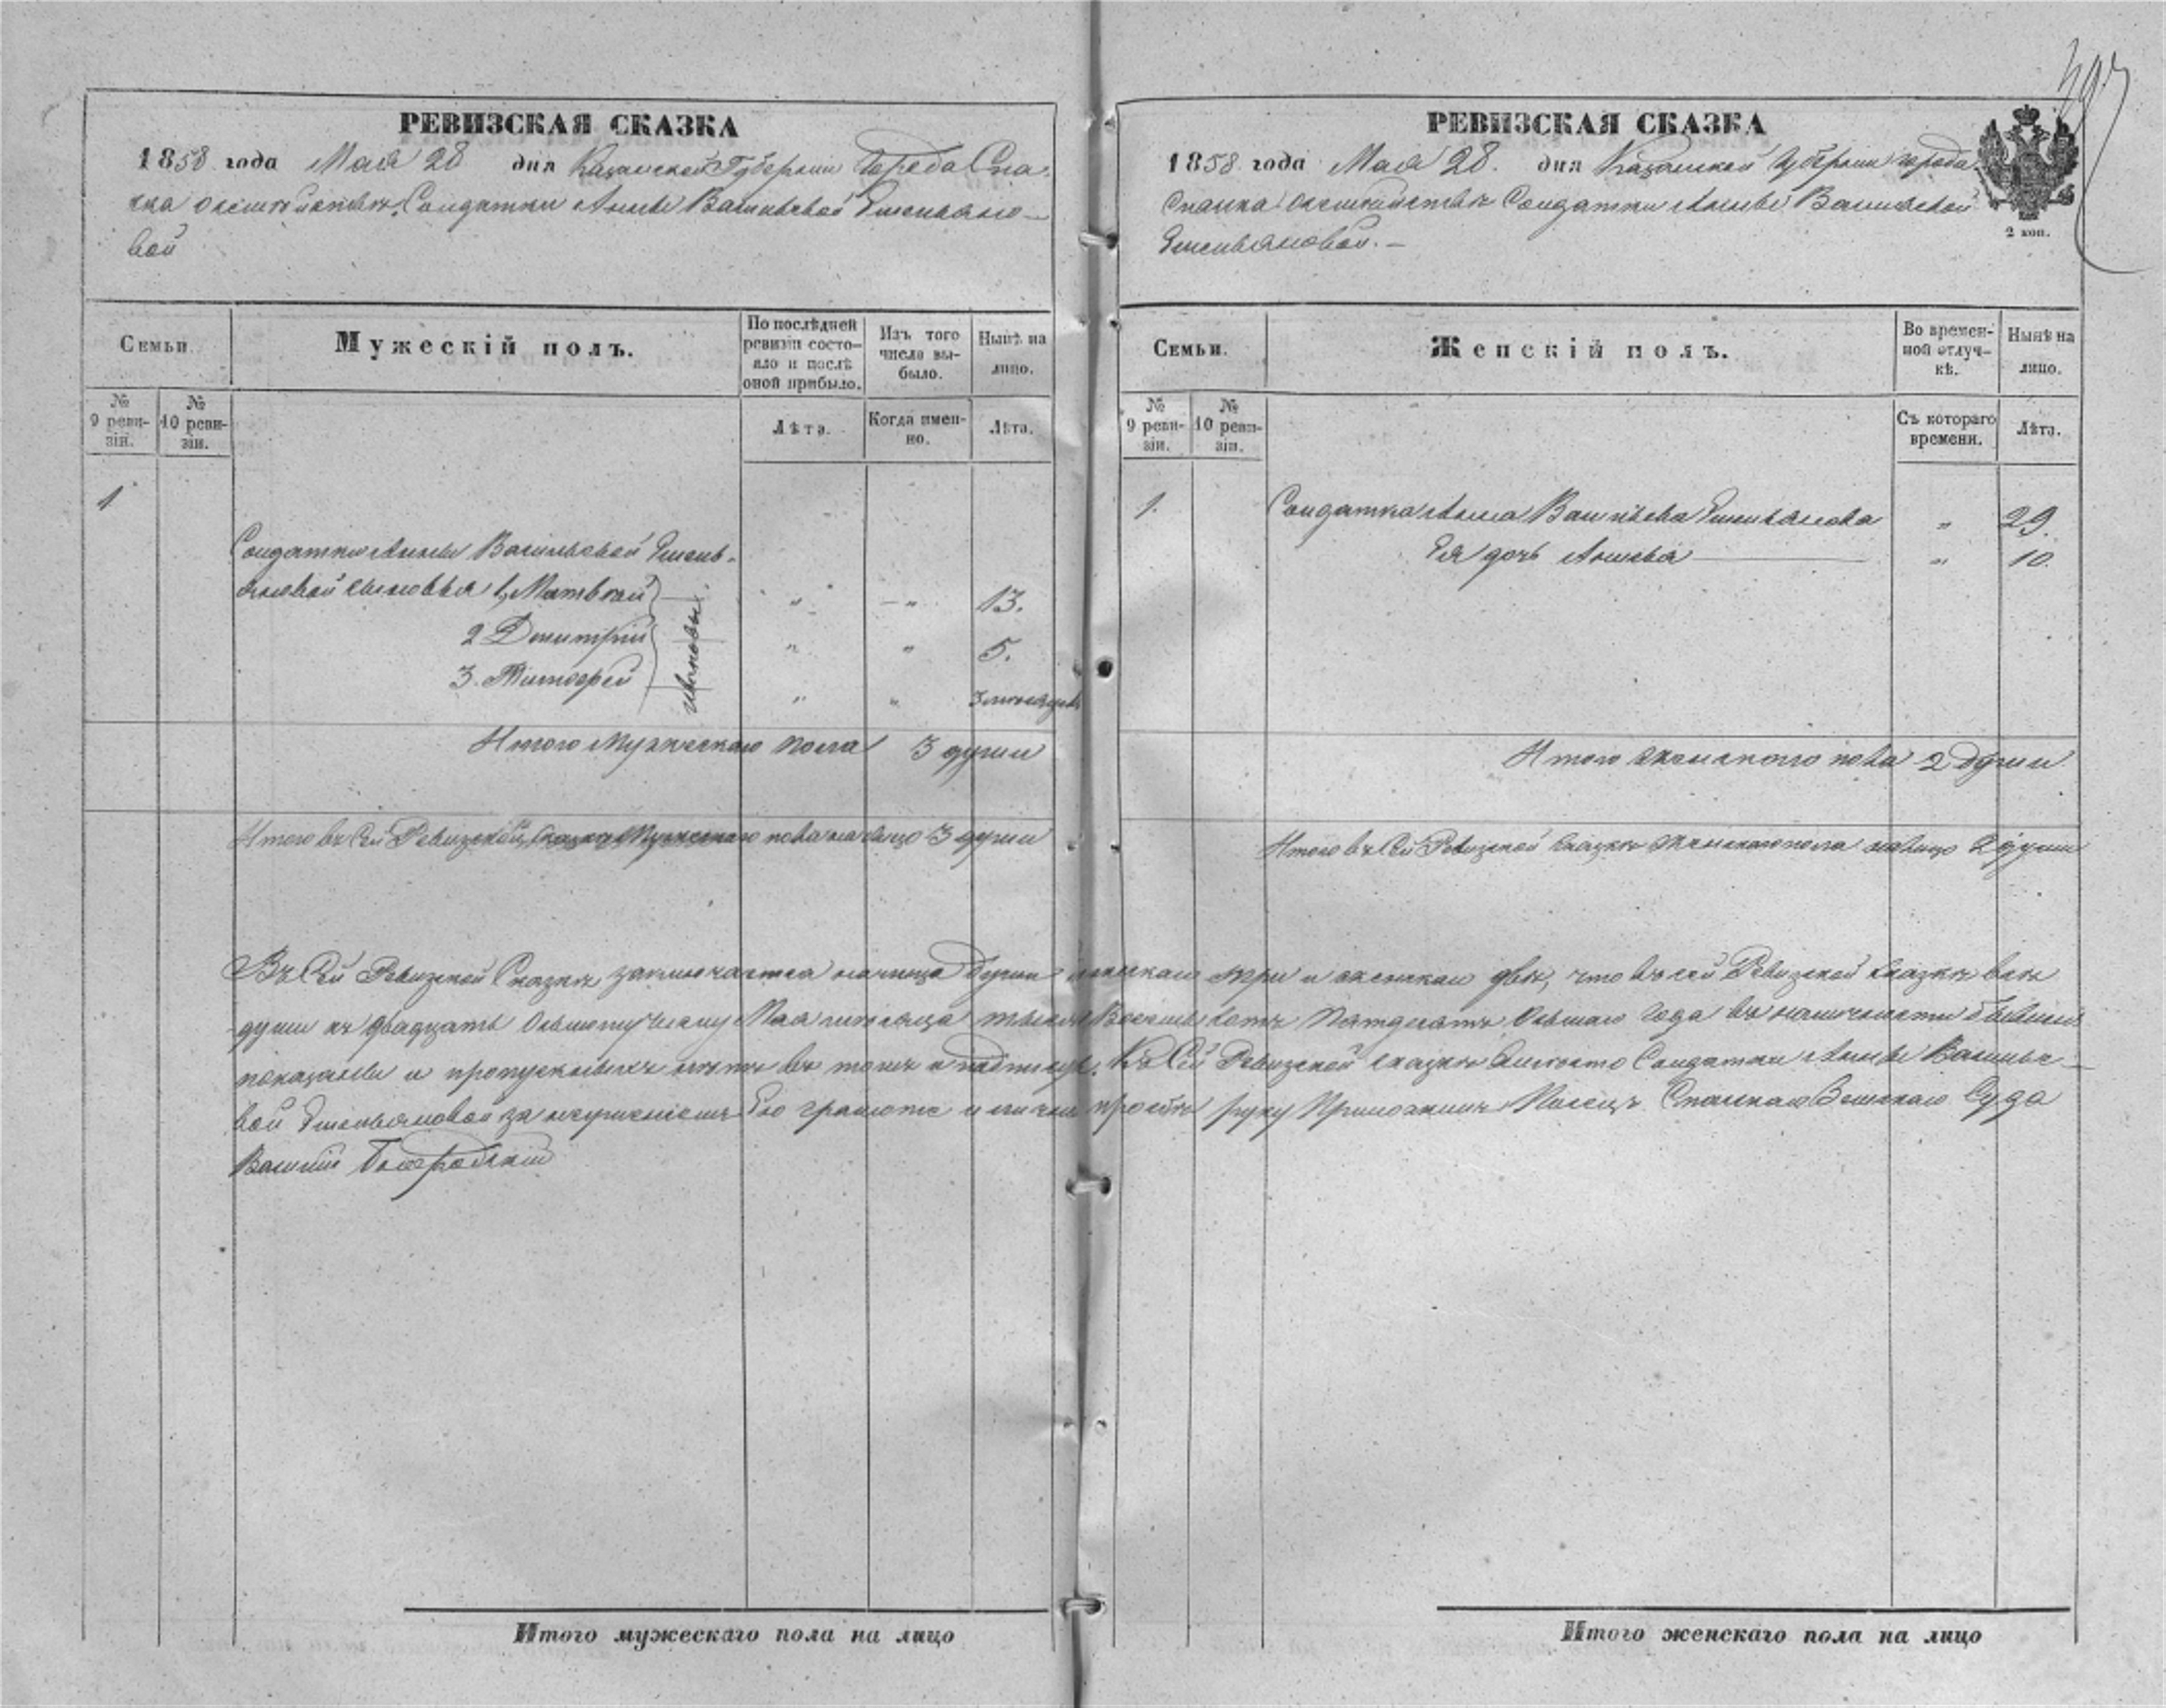 РЕВИЗСКАЯ СКАЗКА
1858 года Мая 28 дня Казанской Губернiи Города Спа-
ска о семействѣ Солдатки Анны Васильевой Емельяно-
вой
Семьи.
Мужескiй полъ.
По послѣдней ревизiи состо-яло и послѣ оной прибыло.
Изъ того числа вы-было.
Нынѣ на лицо.
№ 9 реви-зiи.
№ 10 реви-зiи.
Лѣта.
Когда имен-но.
Лѣта.
1
Солдатки Анны Васильевой Емель-
яновой сыновья 1, Матвей — " — " 13.
2 Дмитрiй " " 5.
3. Тимофей " " 3 месяцев
Ивановы.
Итого Мужескаго пола 3 души
Итого въ сей Ревизской сказке Мужескаго пола на лицо 3 души
РЕВИЗСКАЯ СКАЗКА
1858 года Мая 28. дня Казанской Губернiи города
Спаска о семействѣ Солдатки Анны Васильевой
Емельяновой. —
2 коп.
Семьи.
Женскiй полъ.
Во времен-ной отлуч-кѣ.
Нынѣ на лицо.
№ 9 реви-зiи.
№ 10 реви-зiи.
Съ котораго времени.
Лѣта.
1.
Солдатка Анна Васильева Емельянова " 29.
Ея дочь " 10.
Итого женскаго пола 2 души
Итого въ сей Ревизской сказкѣ женскаго пола на лицо 2 души
Въ сей Ревизской Сказкѣ заключается налицо душъ мужскаго три и женскаго двѣ, что въ сей Ревизской сказкѣ всѣ
души къ двадцать осьмому числу Мая месяца тысяча Восемьсотъ Пятдесятъ Осьмаго года въ наличности бывшiя
показаны и пропускныхъ нѣтъ въ томъ и подпис. Къ сей Ревизской сказкѣ вместо Солдатки Анны Василье-
вой Емельяновой за неумѣнiемъ Ею грамоте и личной просьбе руку Приложилъ Писецъ Спаскаго Земскаго Суда
Василiй
Итого мужескаго пола на лицо
Итого женскаго пола на лицо